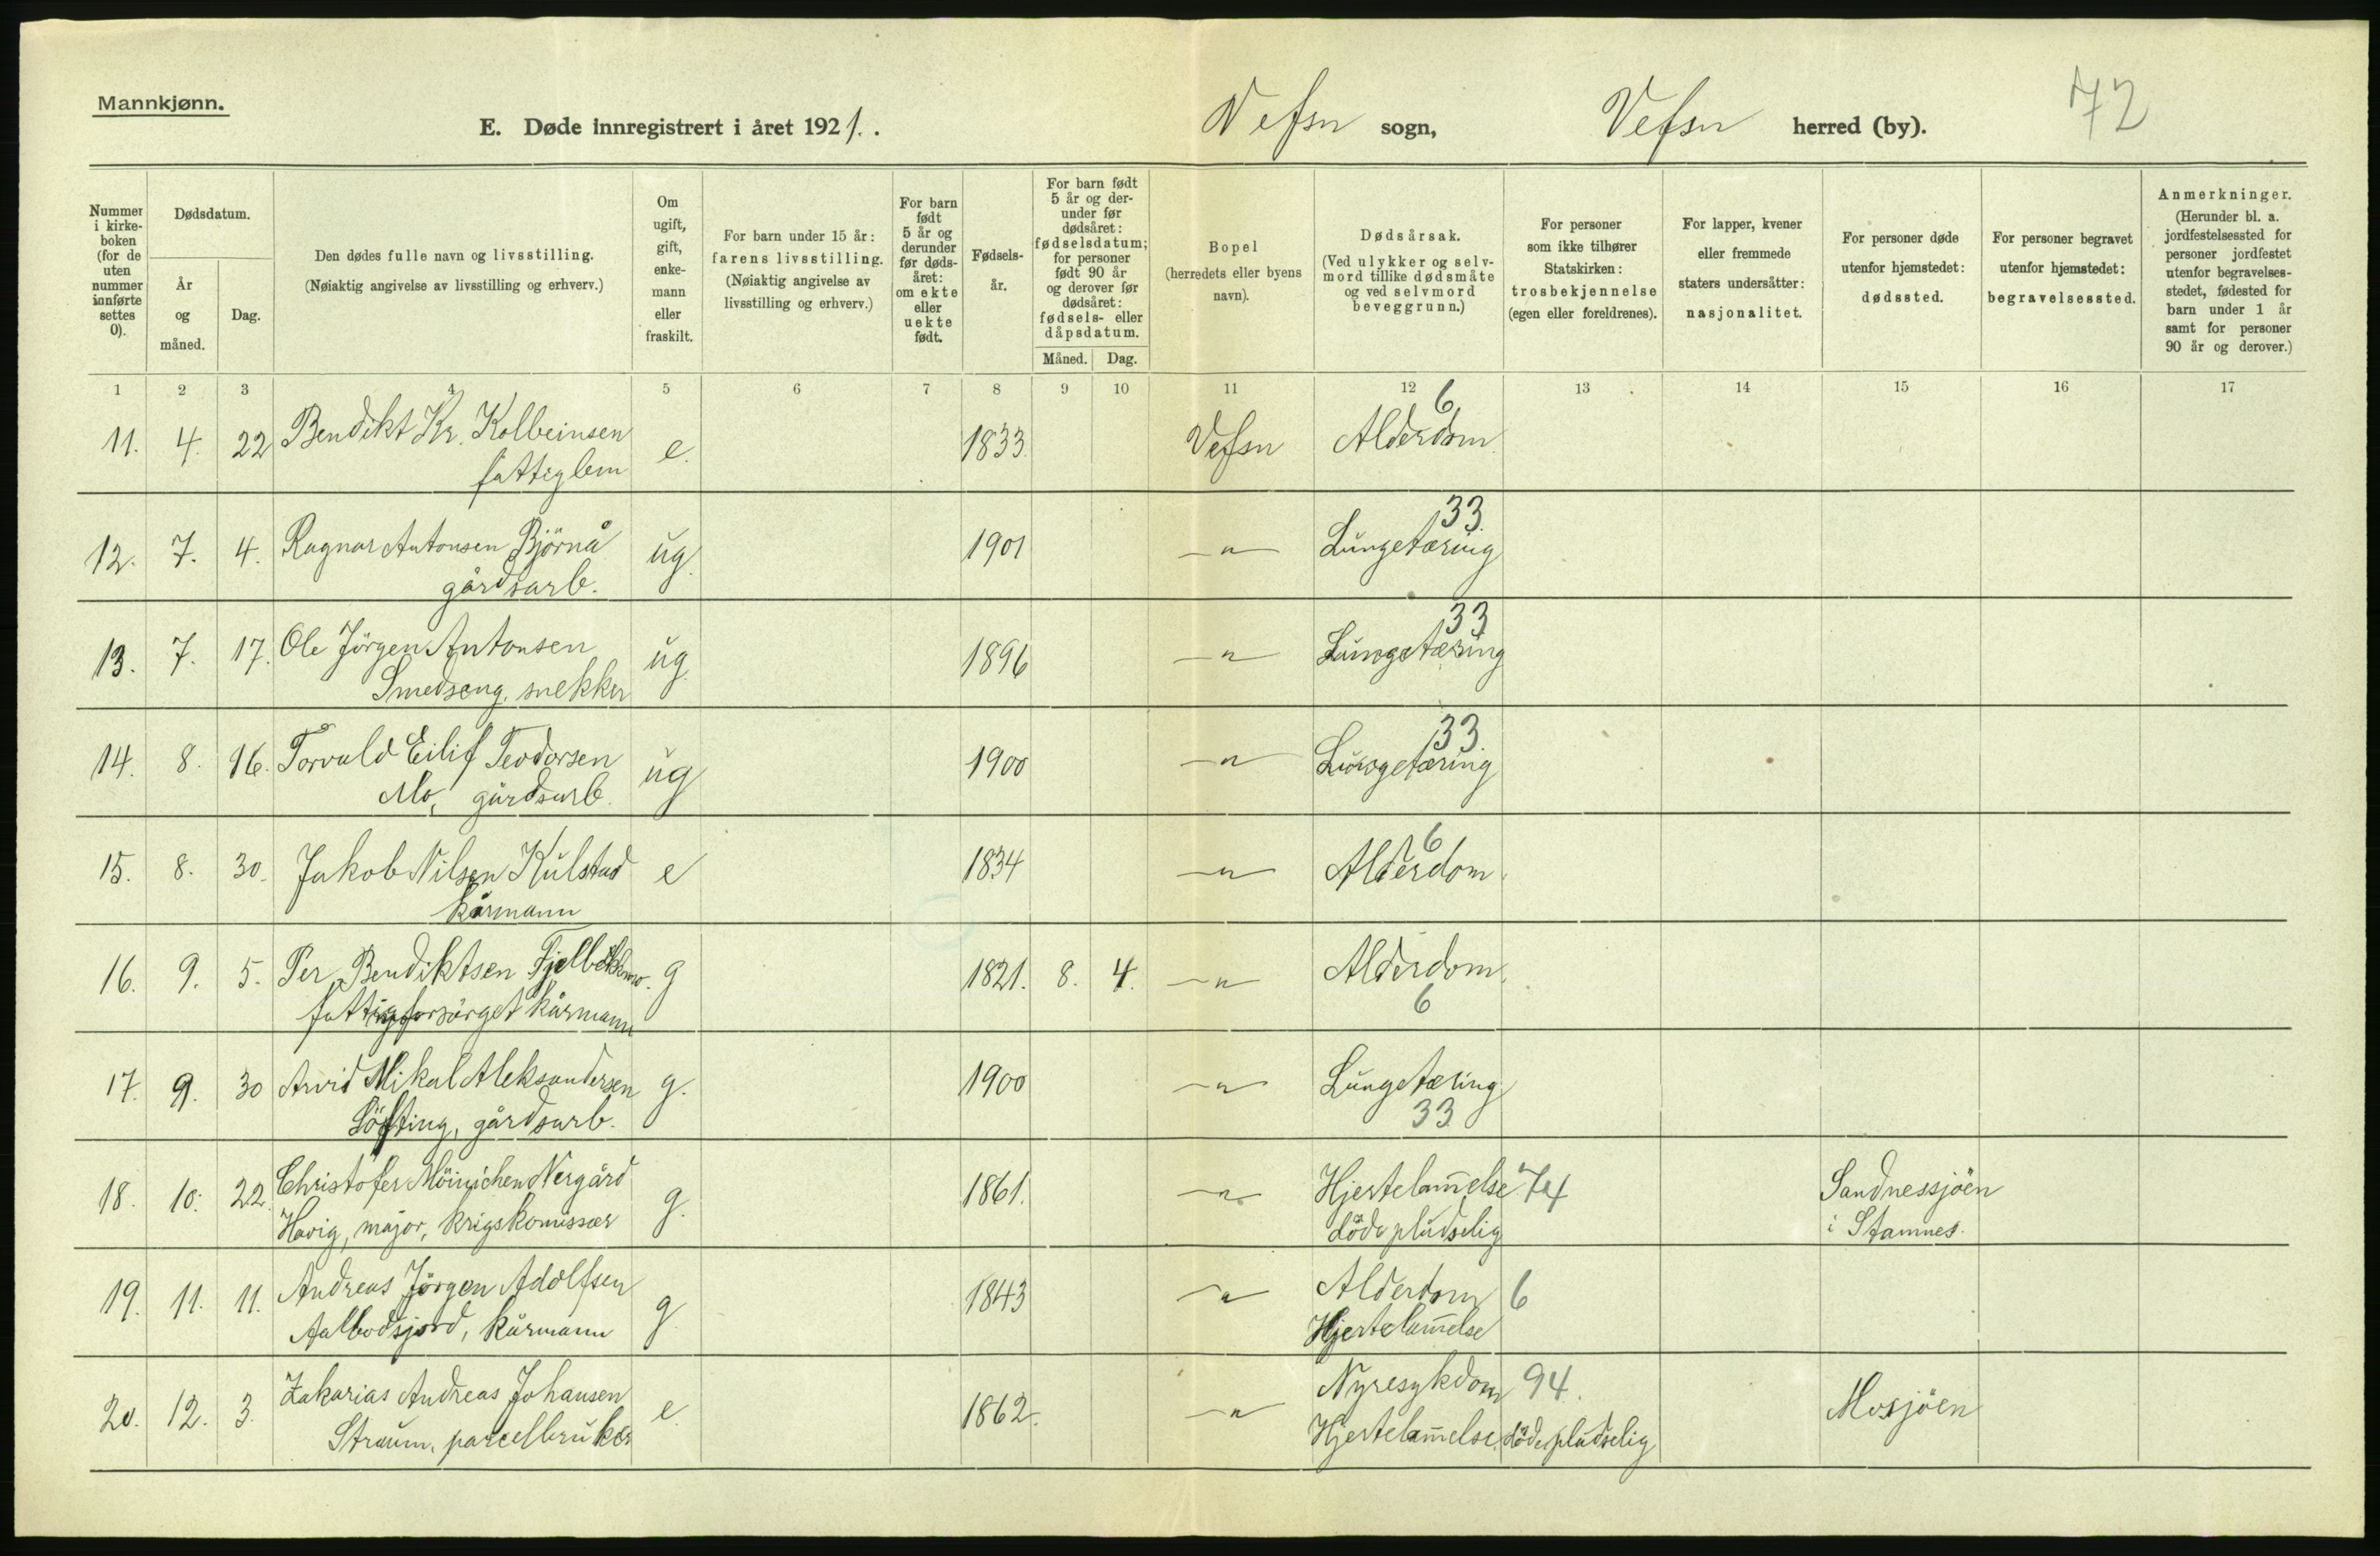 Mannkjønn.
E. Døde innregistrert i året 1921.
Vefsn sogn,
Vefsn herred (by).
72
Nummer i kirkeboken (for de uten nummer innførte settes 0).
Dødsdatum.
År og måned.
Dag.
Den dødes fulle navn og livsstilling.
(Nøiaktig angivelse av livsstilling og erhverv.)
Om ugift, gift, enkemann eller fraskilt.
For barn under 15 år: farens livsstilling.
(Nøiaktig angivelse av livsstilling og erhverv.)
For barn født 5 år og derunder før dødsåret: om ekte eller uekte født.
Fødselsår.
For barn født 5 år og derunder før dødsåret: fødselsdatum; for personer født 90 år og derover før dødsåret: fødsels- eller dåpsdatum.
Måned.
Dag.
Bopel
(herredets eller byens navn).
Dødsårsak.
(Ved ulykker og selvmord tillike dødsmåte og ved selvmord beveggrunn.)
For personer som ikke tilhører Statskirken: trosbekjennelse (egen eller foreldrenes).
For lapper, kvener eller fremmede staters undersåtter: nasjonalitet.
For personer døde utenfor hjemstedet: dødssted.
For personer begravet utenfor hjemstedet: begravelsessted.
Anmerkninger.
(Herunder bl. a. jordfestelsessted for personer jordfestet utenfor begravelsesstedet, fødested for barn under 1 år samt for personer 90 år og derover.)
1 2 3 4 5 6 7 8 9 10 11 12 13 14 15 16 17
11. 4. 22 Bendikt Kr. Kolbeinsen e. 1833 Vefsn Alderdom 6
fattiglem
12. 7. 4. Ragnar Antonsen Björnå ug. 1901 -"- Lungetæring 33.
gårdsarb.
13. 7. 17. Ole Jörgen Antonsen ug. 1896 -"- Lungetæring 33
Smedseng, snekker
14. 8. 16. Torvald Eilif Teodorsen ug 1900 -"- Lungetæring 33.
Mo, gårdsarb.
15. 8. 30. Jakob Nilsen Kulstad e 1834 -"- Alderdom. 6
kårmann
16. 9. 5. Per Bendiktsen g 1821. 8. 4. -"- Alderdom. 6
fattigforsörget kårmann
17. 9. 30 Arvid Mikal Aleksandersen g. 1900 -"- Lungetæring 33
Löfting, gårdsarb.
18. 10. 22. Christofer Möinichen Nergård g. 1861. -"- Hjertelam̅else 74 Sandnessjöen
Havig, major, krigskomissær döde pludselig i Stamnes.
19. 11. 11. Andreas Jörgen Adolfsen g. 1843 -"- Alderdom 6
kårmann Hjertelam̅else
20. 12. 3. Zakarias Andreas Johansen e. 1862. -"- Nyresykdom 94. Mosjöen
Straum, parcelbruker Hjertelam̅else, döde pludselig